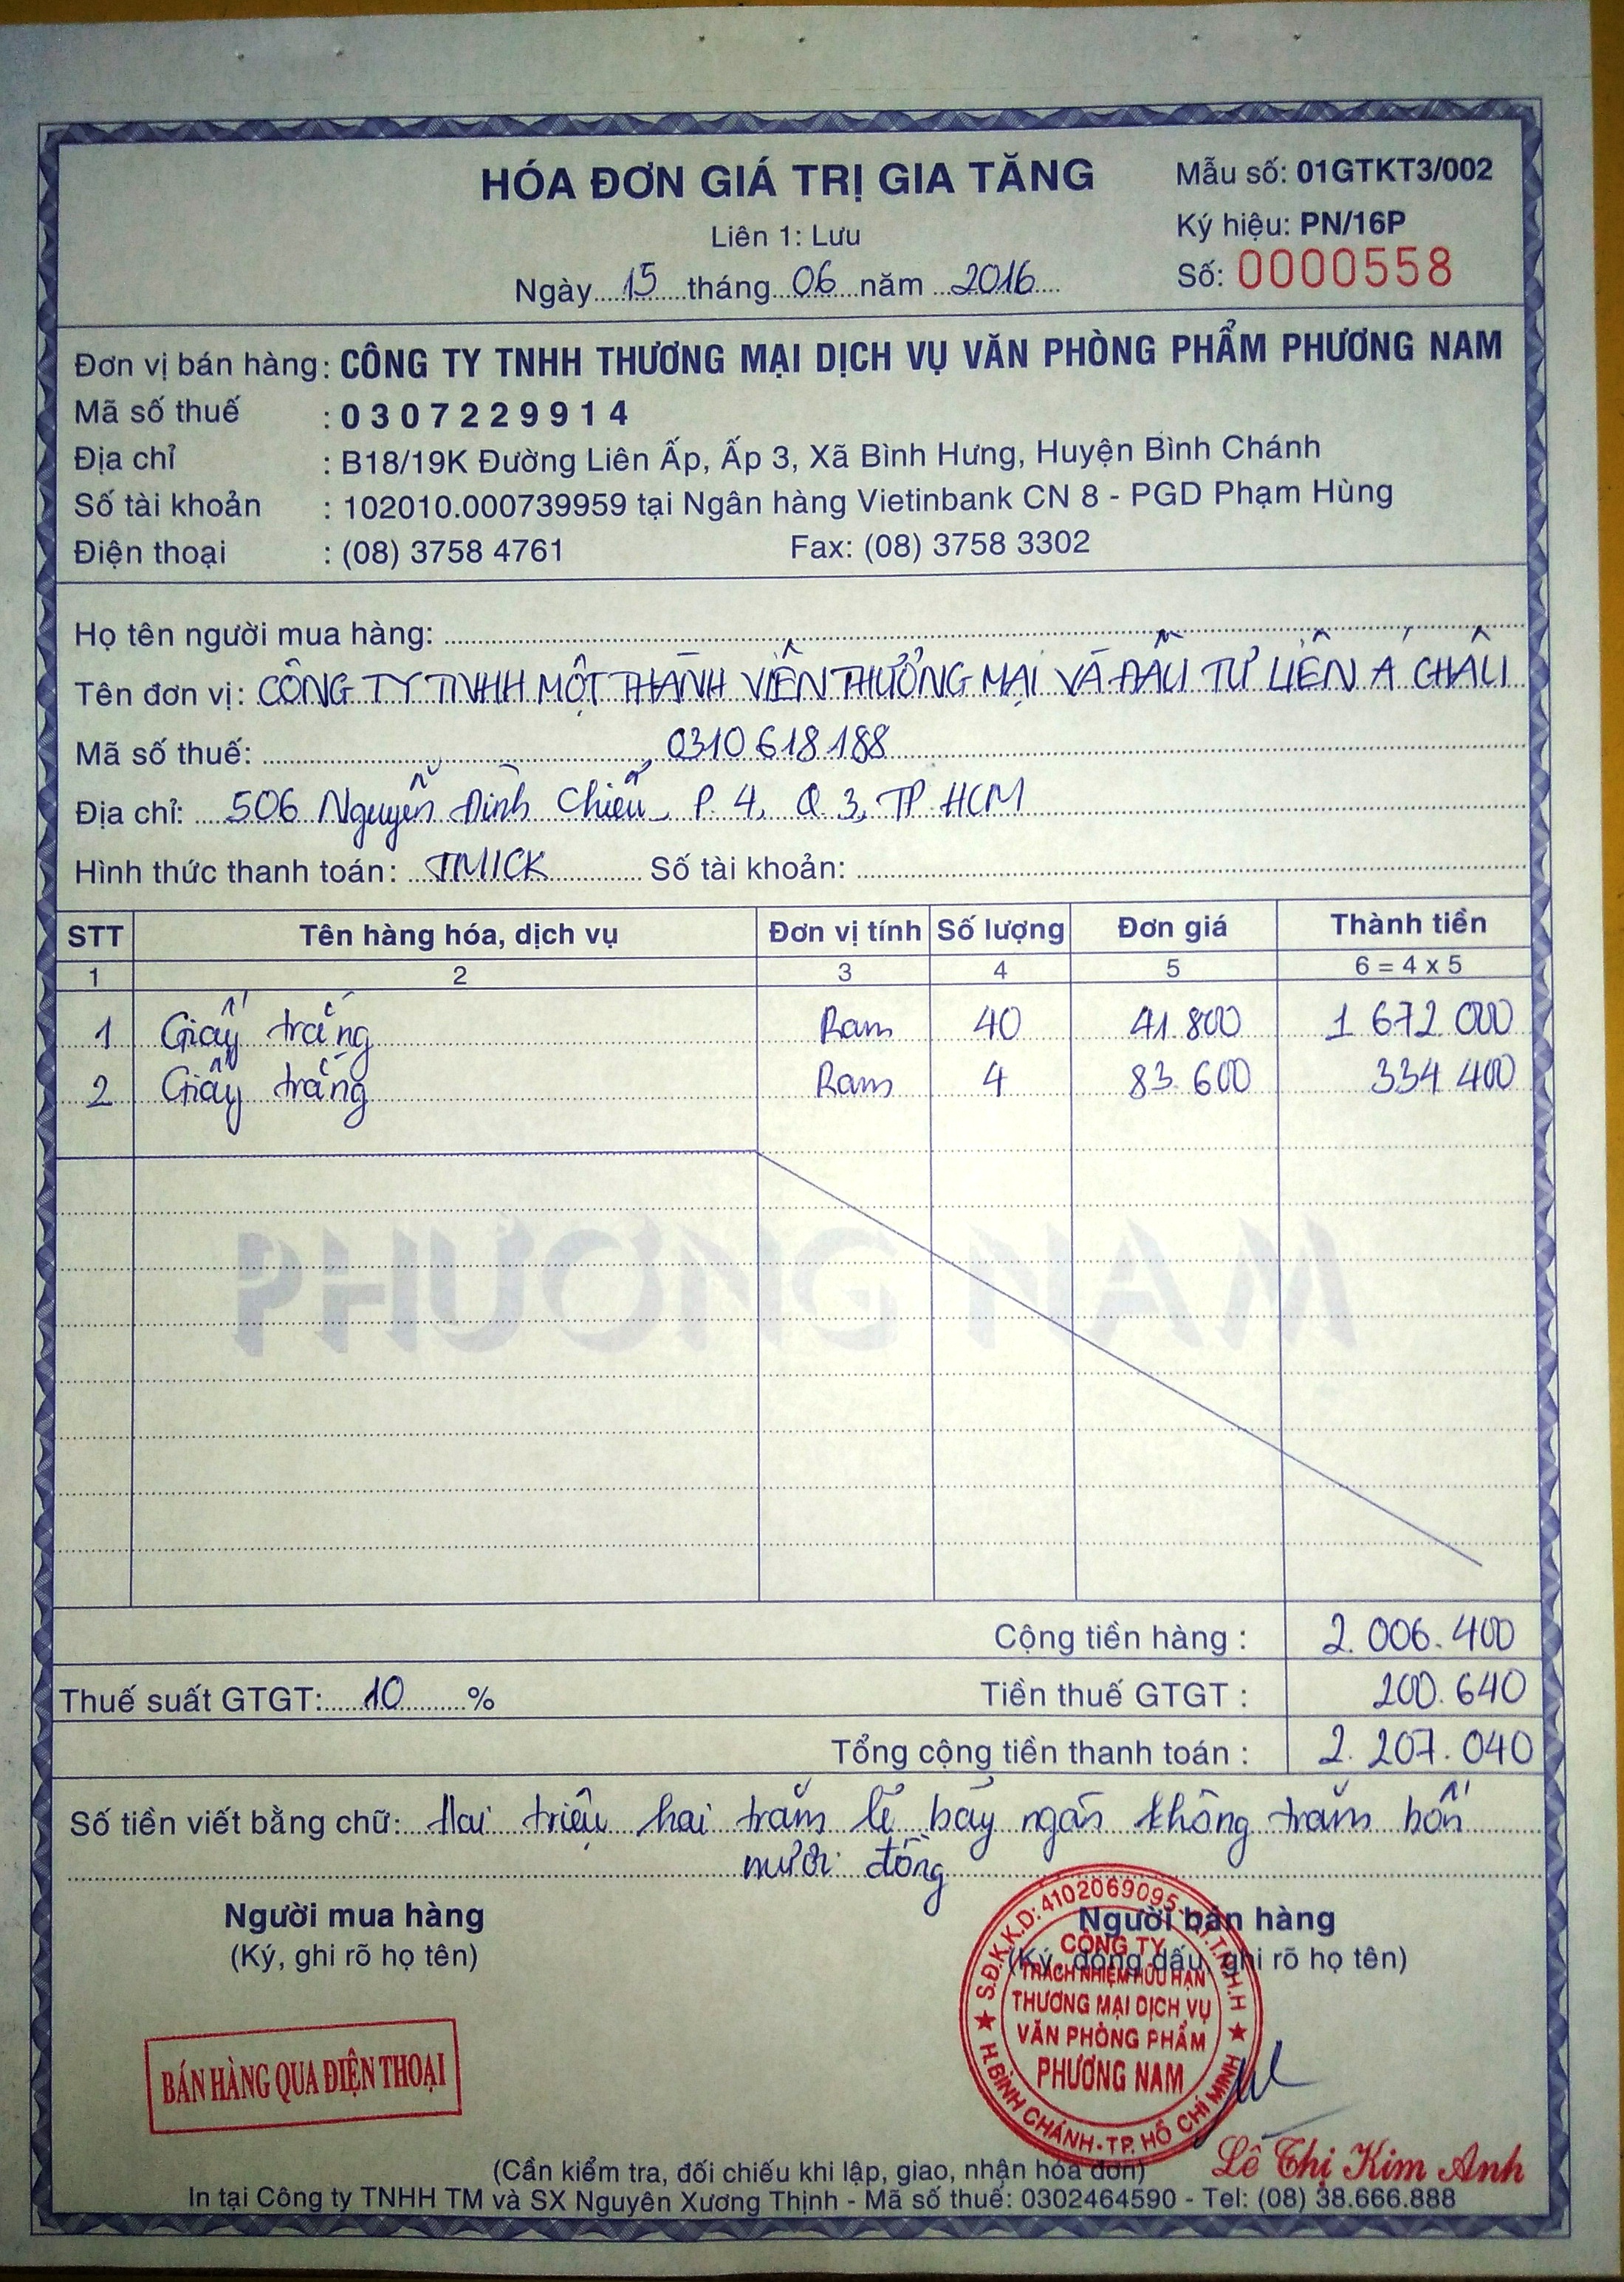 HÓA ĐƠN GIÁ TRỊ GIA TĂNG
Mẫu số: 01GTKT3/002
Liên 1: Lưu
Ký hiệu: PN/16P
Ngày 15 tháng 06 năm 2016
Số: 0000558
Đơn vị bán hàng: CÔNG TY TNHH THƯƠNG MẠI DỊCH VỤ VĂN PHÒNG PHẨM PHƯƠNG NAM
Mã số thuế : 0307229914
Địa chỉ : B18/19K Đường Liên Ấp, Ấp 3, Xã Bình Hưng, Huyện Bình Chánh
Số tài khoản : 102010.000739959 tại Ngân hàng Vietinbank CN 8 - PGD Phạm Hùng
Điện thoại : (08) 3758 4761 Fax: (08) 3758 3302
Họ tên người mua hàng:
Tên đơn vị: CÔNG TY TNHH MỘT THÀNH VIÊN THƯƠNG MẠI VÀ ĐẦU TƯ LIÊN Á CHÂU
Mã số thuế: 0310618188
Địa chỉ: 506 Nguyễn Đình Chiểu, P. 4, Q 3, TP. HCM
Hình thức thanh toán: TM/CK Số tài khoản:
STT Tên hàng hóa, dịch vụ Đơn vị tính Số lượng Đơn giá Thành tiền
1 2 3 4 5 6 = 4 x 5
1 Giấy trắng Ram 40 41.800 1 672.000
2 Giấy trắng Ram 4 83.600 334.400
PHƯƠNG NAM
Cộng tiền hàng : 2.006.400
Thuế suất GTGT: 10 % Tiền thuế GTGT : 200.640
Tổng cộng tiền thanh toán : 2.207.040
Số tiền viết bằng chữ: Hai triệu hai trăm lẻ bảy ngàn không trăm bốn
mươi đồng
Người mua hàng
(Ký, ghi rõ họ tên)
Người bán hàng
(Ký, đóng dấu, ghi rõ họ tên)
BÁN HÀNG QUA ĐIỆN THOẠI
S.Đ.K.K.D: 4102069095 - C.T.T.N.H.H
CÔNG TY
TRÁCH NHIỆM HỮU HẠN
THƯƠNG MẠI DỊCH VỤ
VĂN PHÒNG PHẨM
PHƯƠNG NAM
H.BÌNH CHÁNH-TP. HỒ CHÍ MINH
Lê Thị Kim Anh
(Cần kiểm tra, đối chiếu khi lập, giao, nhận hóa đơn)
In tại Công ty TNHH TM và SX Nguyên Xương Thịnh - Mã số thuế: 0302464590 - Tel: (08) 38.666.888